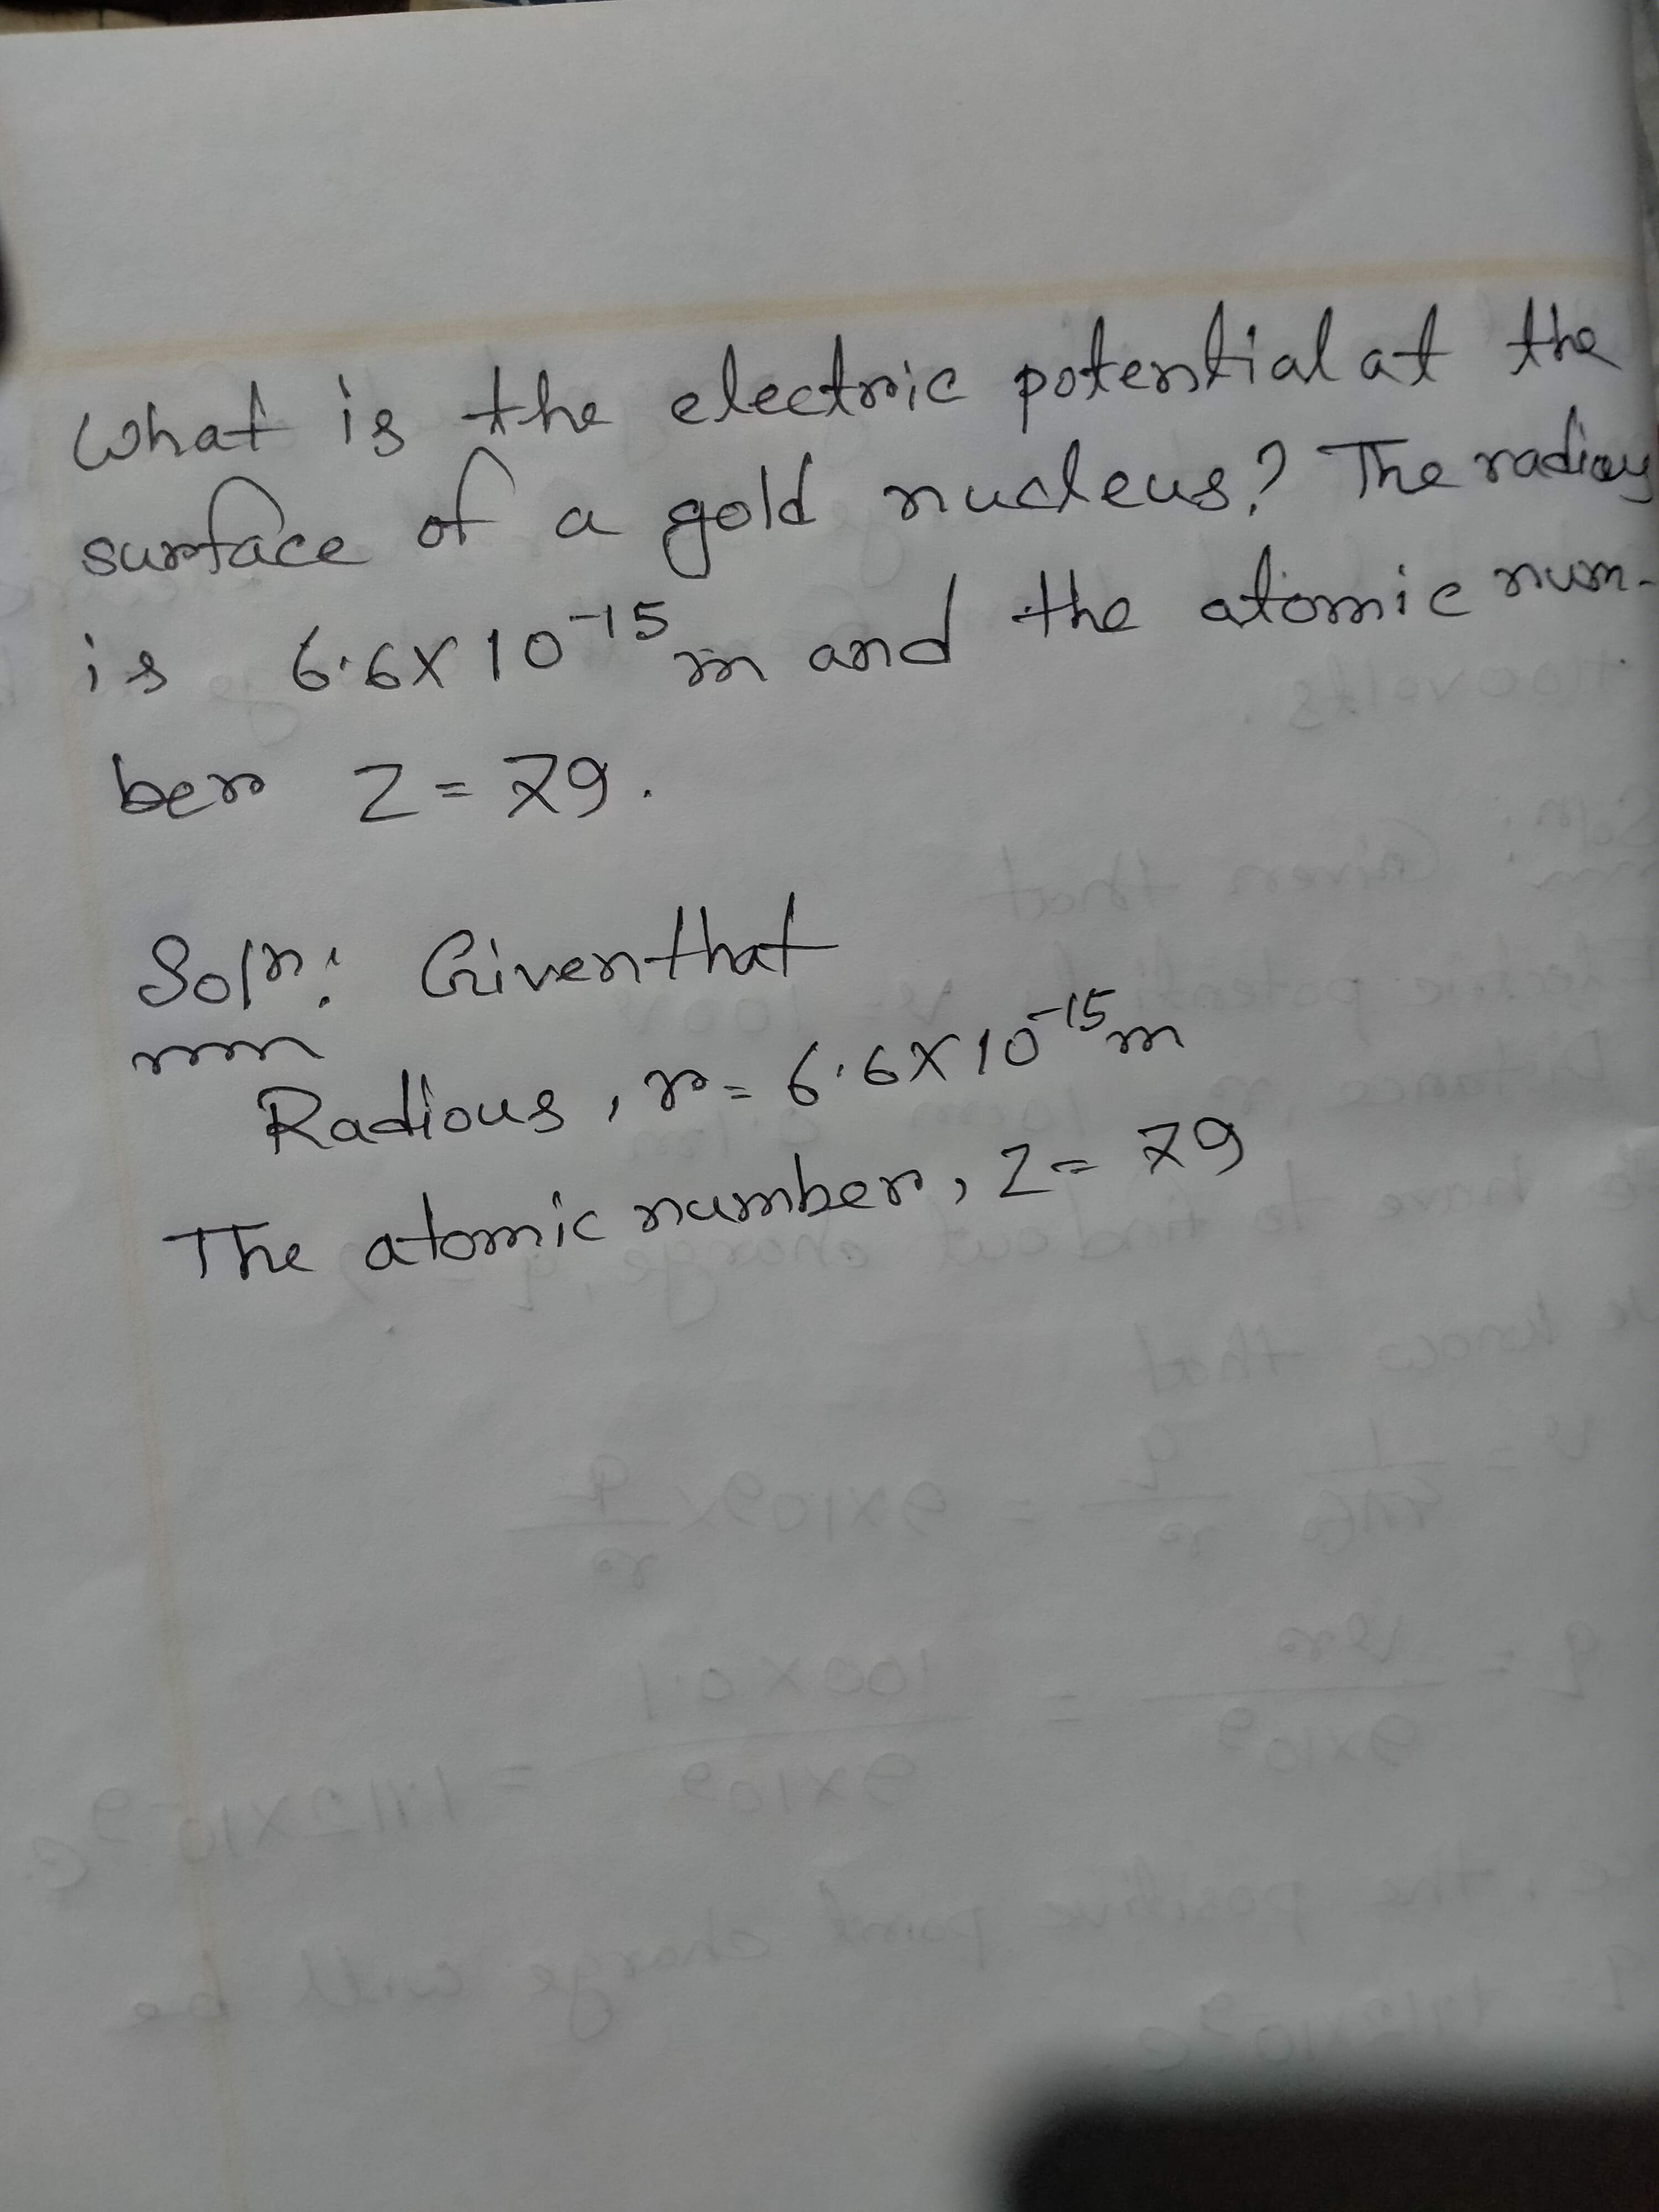 What is the electric potential at the
surface of a gold nucleus? The radious
is 6.6X10⁻¹⁵m and the atomic num-
ber Z = 79.
Solⁿ: Given that
Radious, r = 6.6X10⁻¹⁵m
The atomic number, Z = 79